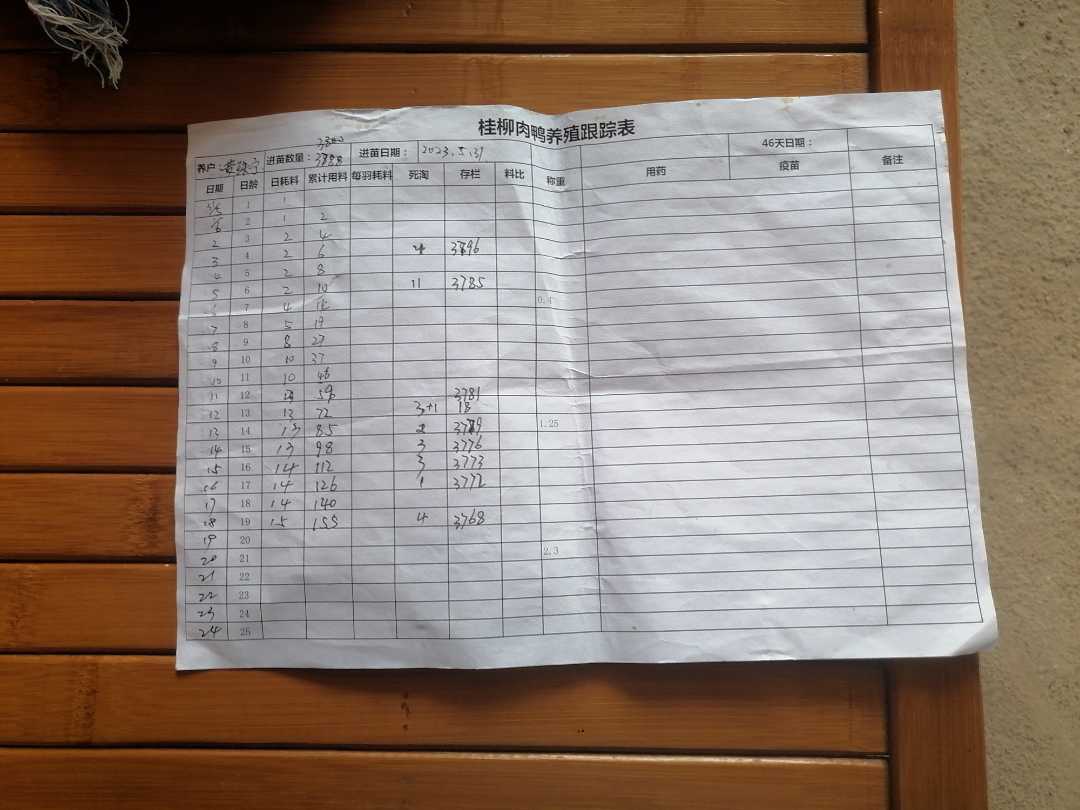 桂柳肉鸭养殖跟踪表
养户: 进苗数量: 3800 3888 进苗日期: 2023.5.31 46天日期:
日期 日龄 日耗料 累计用料 每羽耗料 死淘 存栏 料比 称重 用药 疫苗 备注
1 1
2 1 2
2 3 2 4
3 4 2 6 4 3796
4 5 2 8
5 6 2 10 11 3785
7 4 0.4
7 8 5 19
8 9 8 27
9 10 10 37
10 11 10
11 12 59 3781
12 13 13 72 3+1 18
13 14 13 85 2 1.25
14 15 13 98 3 3776
15 16 14 112 3 3773
16 17 14 126 1 3772
17 18 14 140
18 19 15 155 4 3768
19 20
20 21 2.3
21 22
22 23
23 24
24 25